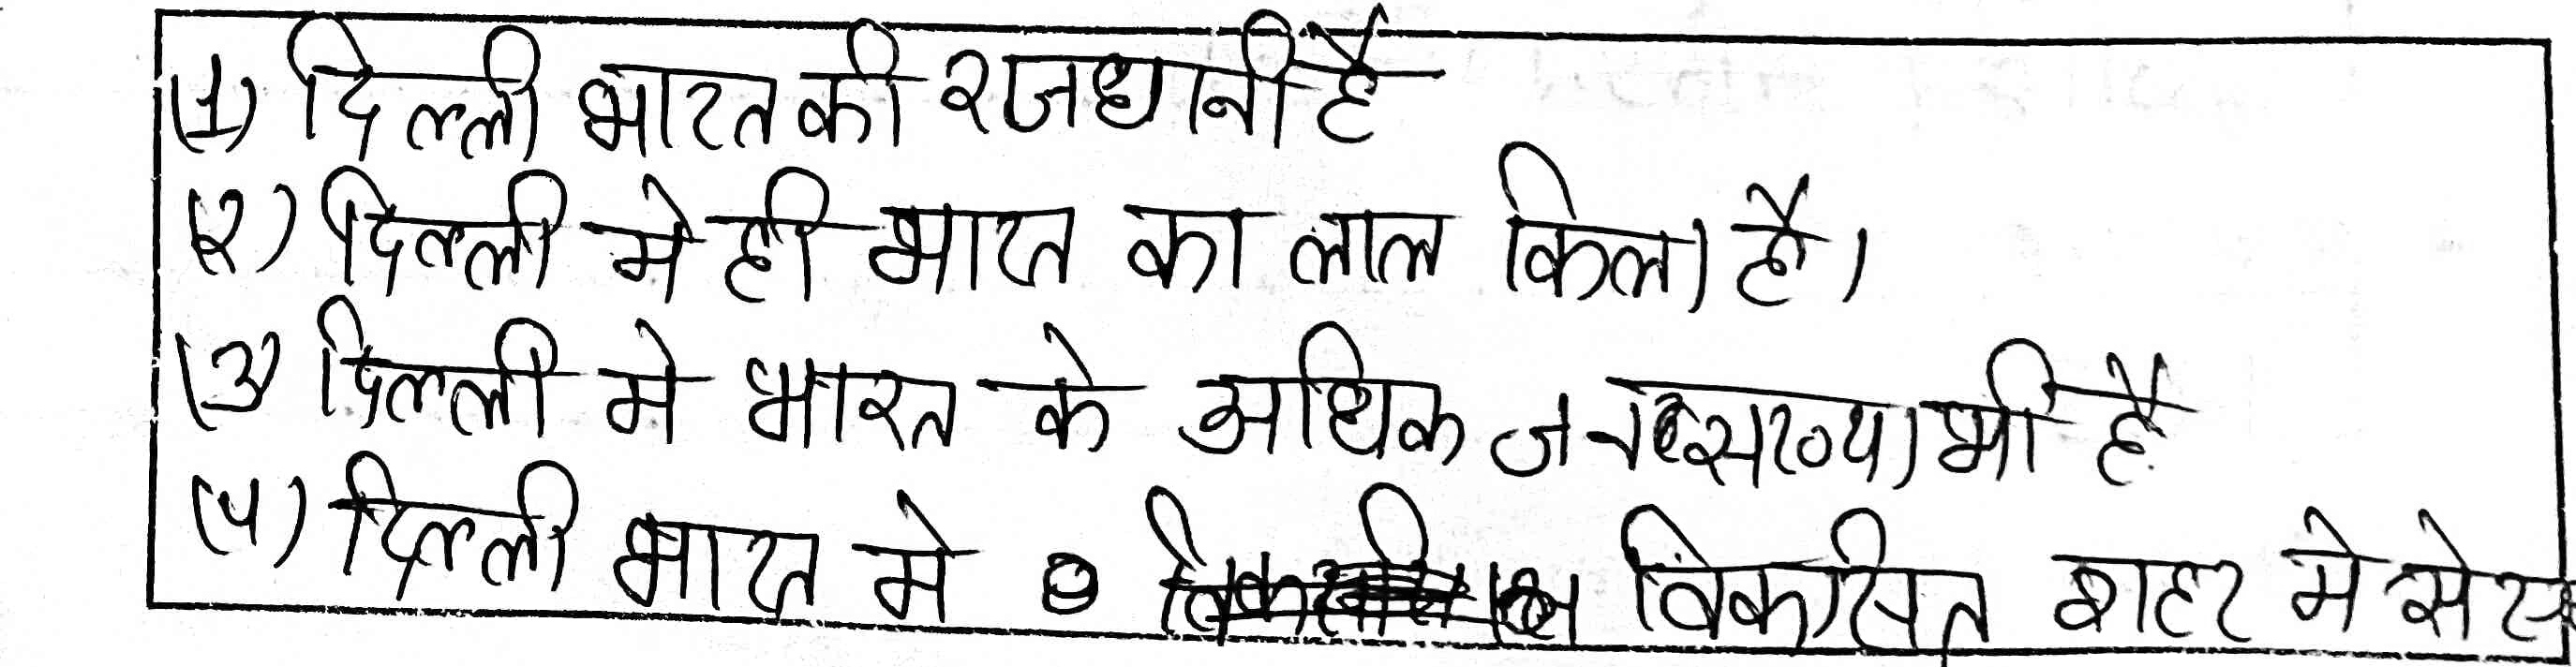 (1) दिल्ली भारत की रजधानी है
(२) दिल्ली मे ही भारत का लाल किला है।
(3) दिल्ली मे भारत के अधिक जनसख्या भी है
(4) दिल्ली भारत मे विकसित शहर मे से